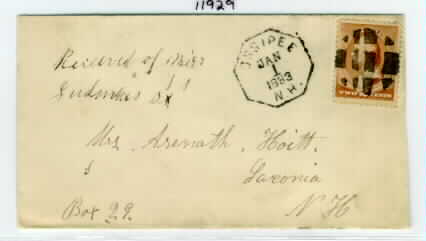 11929
Received of Miss
OSSIPEE
JAN
1
1883
N.H.
Mrs Asenath Hoitt.
Laconia
N H
Box 29.